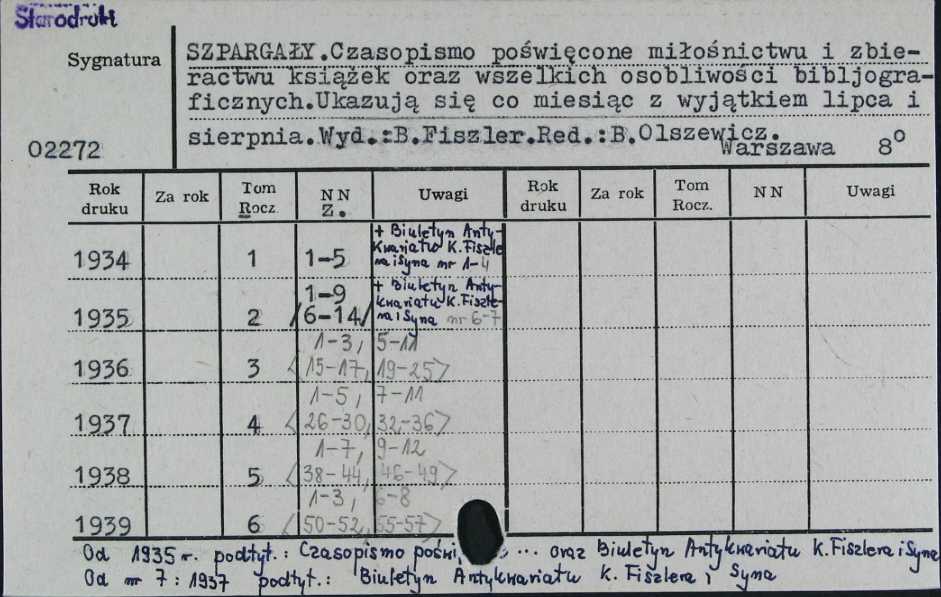 Starodruki
Sygnatura
SZPARGAŁY.Czasopismo poświęcone miłośnictwu i zbie-
ractwu książek oraz wszelkich osobliwości bibljogra-
ficznych.Ukazują się co miesiąc z wyjątkiem lipca i
sierpnia.Wyd.:B.Fiszler.Red.:B.Olszewicz.
02272 Warszawa 8°
Rok druku Za rok Tom Rocz. NN Z. Uwagi Rok druku Za rok Tom Rocz. NN Uwagi
+ Biuletyn Anty-
kwariatu K. Fiszle
1934 1 1-5 ra i Syna nr 1-4
1-9 + Biuletyn Anty-
kwariatu K. Fiszle-
1935 2 /6-14/ ra i Syna nr 6-7
1-3, 5-11
1936 3 <15-17, 19-25>
1-5, 7-11
1937 4 <26-30, 32-36>
1-7, 9-12
1938 5 <38-44, 46-49>
1-3, 6-8
1939 6 <50-52, 55-57>
Od 1935 r. podtyt.: Czasopismo ... oraz Biuletyn Antykwariatu K. Fiszlera i Syna
Od nr 7: 1937 podtyt.: Biuletyn Antykwariatu K. Fiszlera i Syna